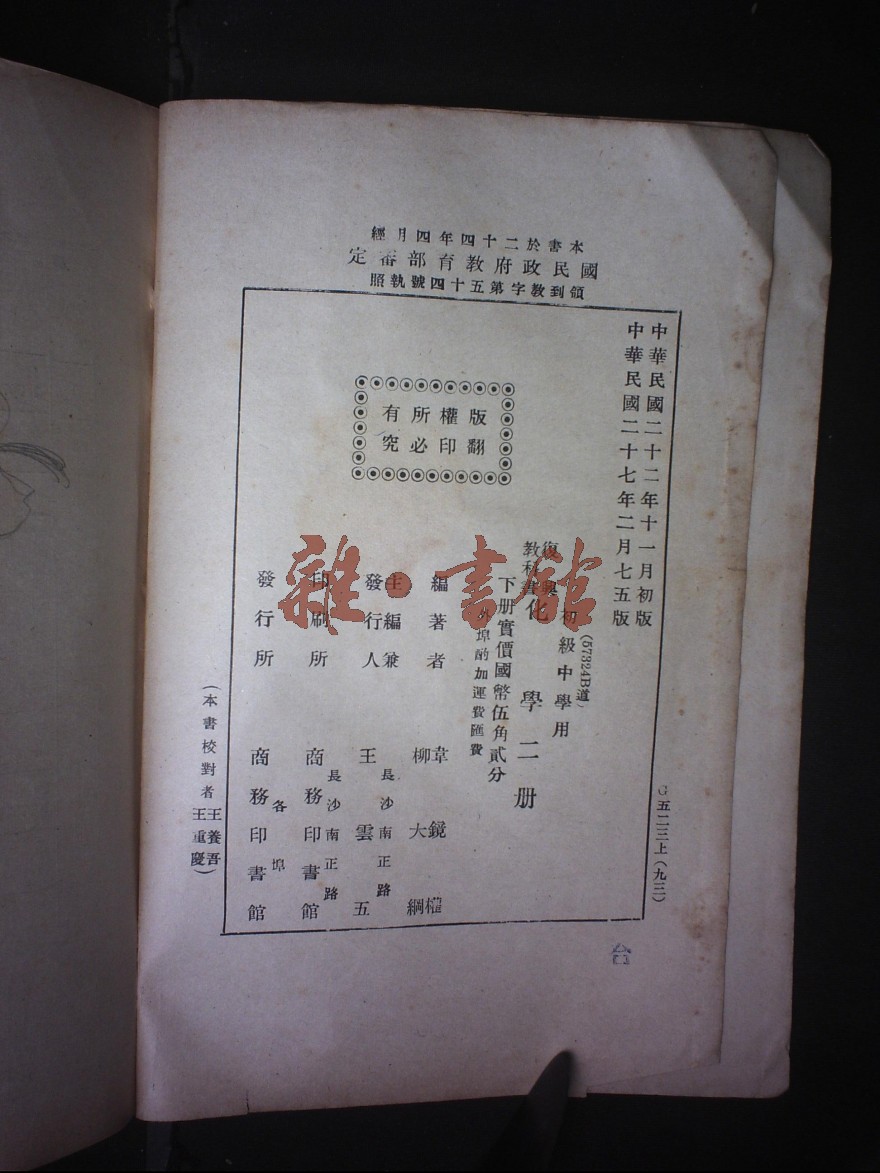 本書於二十四年四月經
國民政府教育部審定
領到教字第五十四號執照
中華民國二十二年十一月初版
中華民國二十七年二月七五版
版權所有
翻印必究
(57324B道)
初級中學用
復興
教科書
化學二册
下册實價國幣伍角貳分
外埠酌加運費匯費
編著者
韋鏡權
柳大綱
主編兼
發行人
長沙南正路
王雲五
印刷所
長沙南正路
商務印書館
發行所
各埠
商務印書館
(本書校對者王養吾
王重慶)
G五二三上(九三)
台
雜·書館